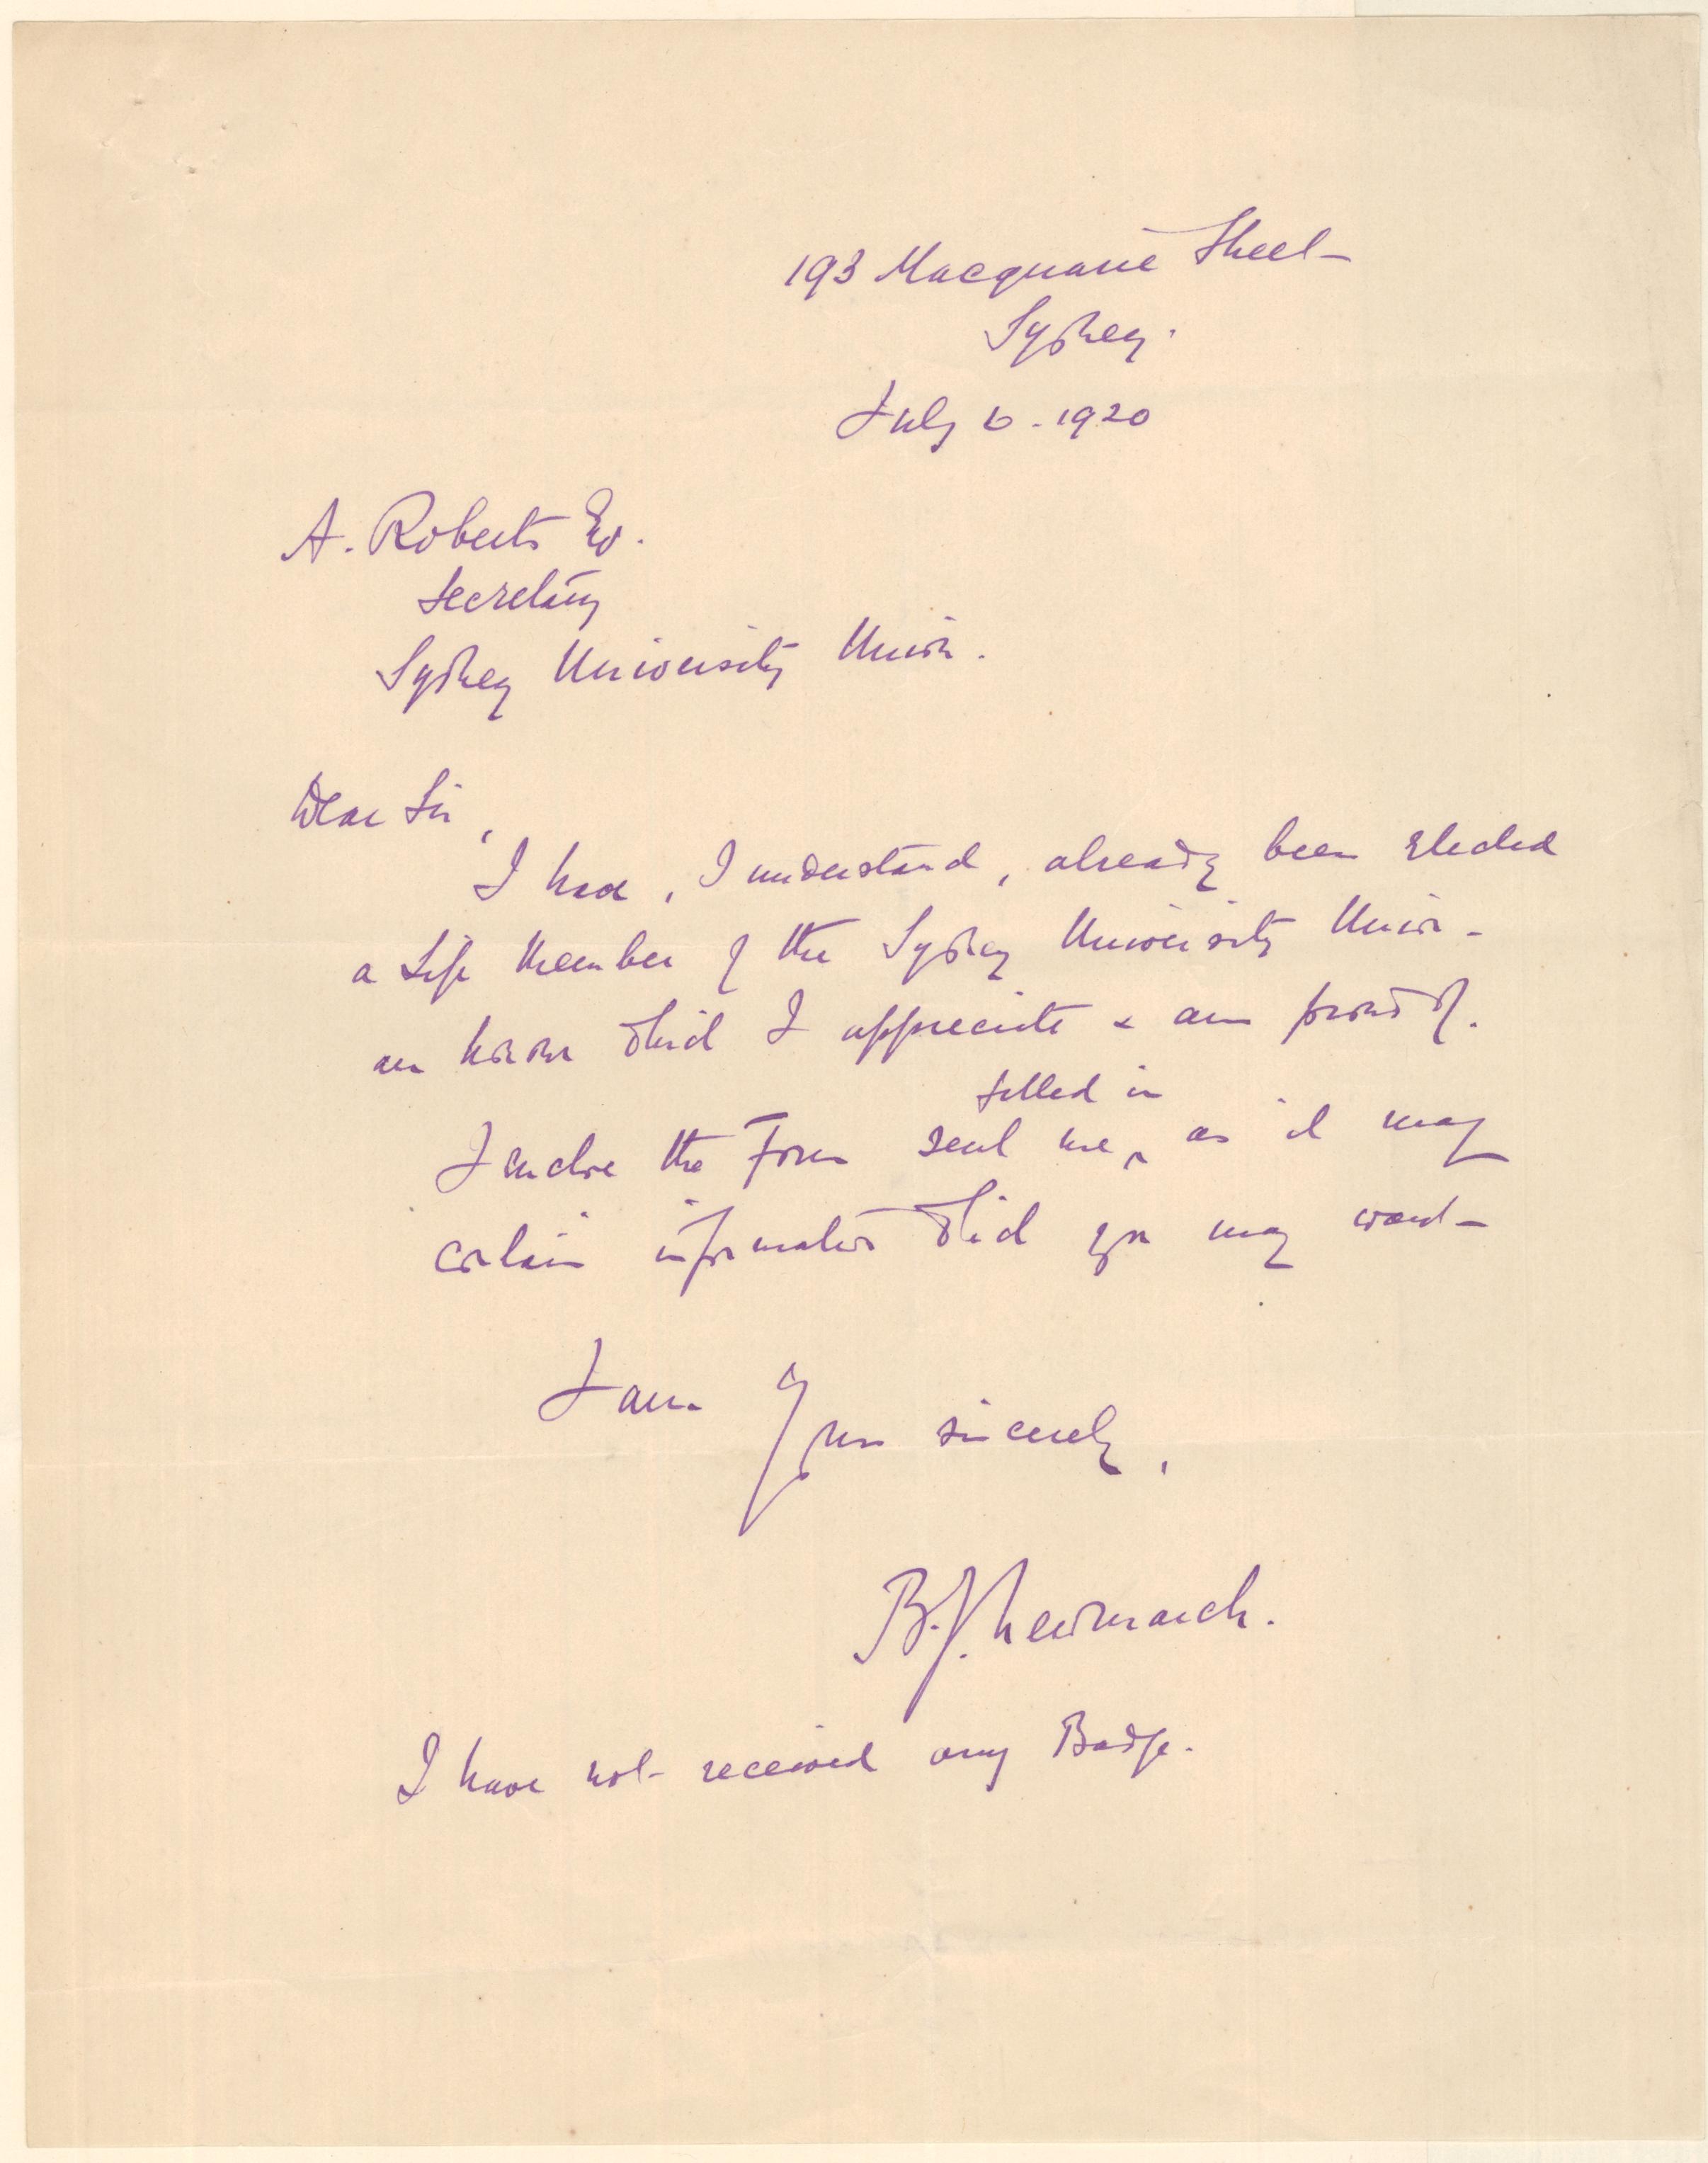 193 Macquarie Street
Sydney.
July 6 - 1920
A. Roberts Esq.
Secretary
Sydney University Union.
Dear Sir,
I have, I understand, already been elected
a Life Member of the Sydney University Union -
an honour which I appreciate & am proud of.
filled in
I enclose the Form sent me ^ as it may
contain information which you may want -
I am
Yours sincerely,
B. J. Newmarch.
I have not received any Badge.